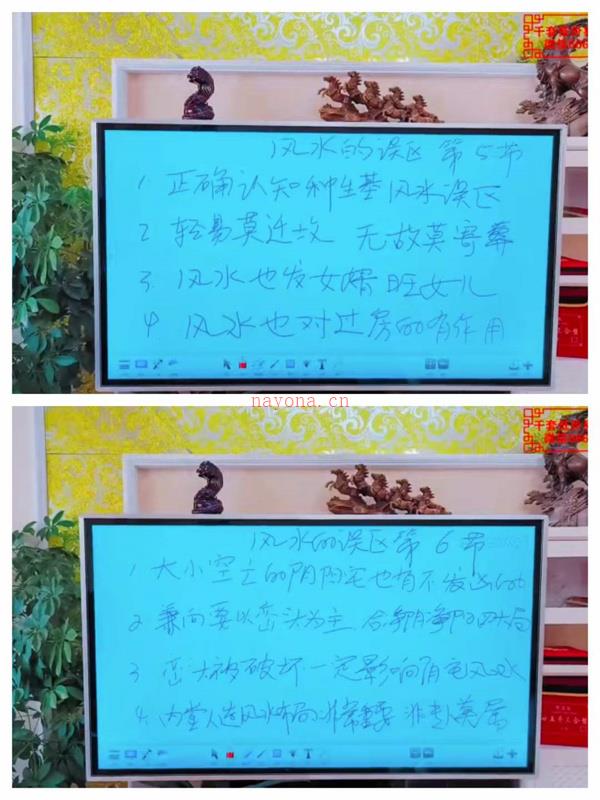 风水的误区 第5节
1 正确认知种生基风水误区
2 轻易莫迁坟 无故莫寄葬
3. 风水也发女婿旺女儿
4 风水也对过房的有作用
nayona.cn
风水的误区第6节
1 大小空亡的阴阳宅也有不发凶的
2 兼向要以峦头为主 合
3 峦头被破坏一定影响阴宅风水
4. 内堂人造风水布局非常重要 非